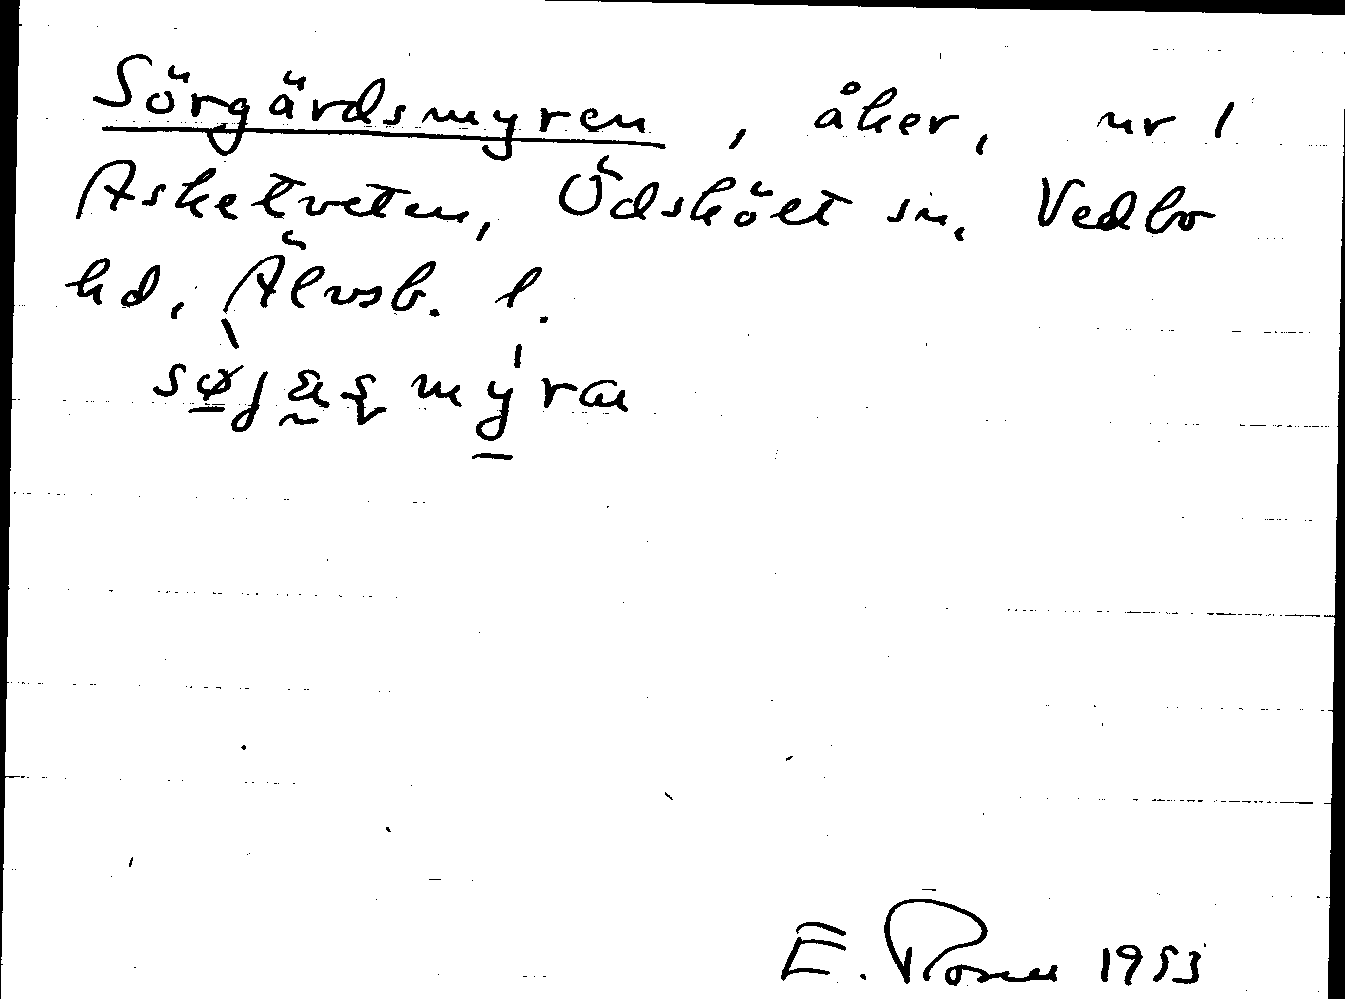 Sörgärdsmyren, åker, nr 1
Asketveten, Ödskölt sn, Vedbo
hd, Älvsb. l.
E. Rosen 1953